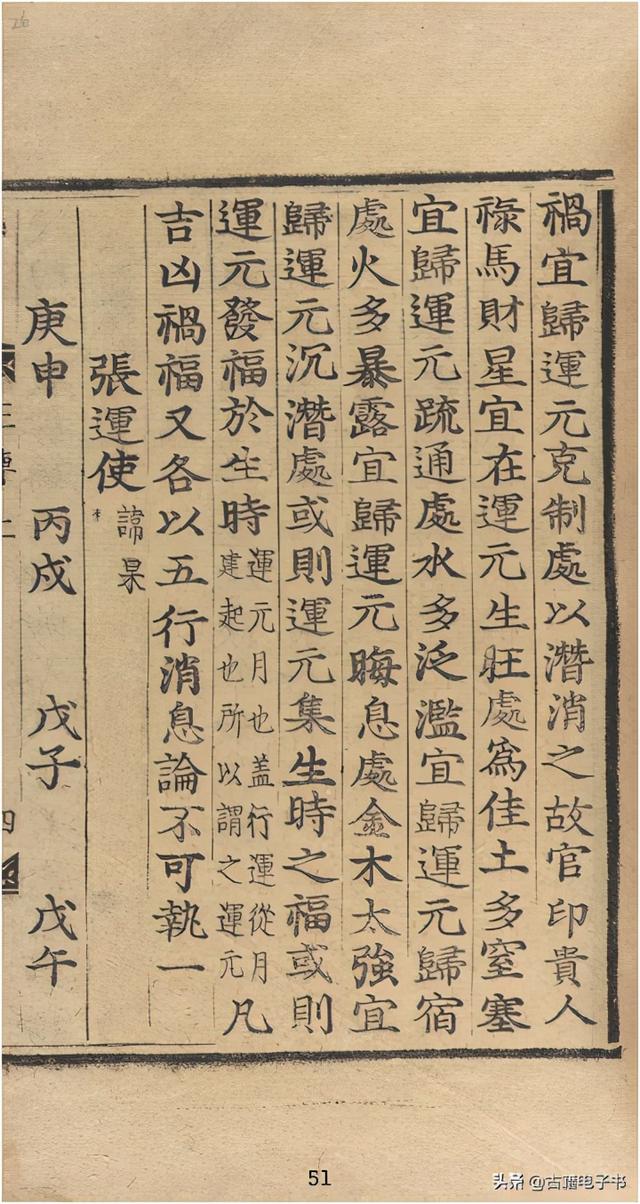 禍宜歸運元克制處以潛消之故官印貴人
祿馬財星宜在運元生旺處為佳土多窒塞
宜歸運元疏通處水多泛濫宜歸運元歸宿
處火多暴露宜歸運元晦息處金木太強宜
歸運元沉潛處或則運元集生時之福或則
運元發福於生時運元月也蓋行運從月建起也所以謂之運元凡
吉凶禍福又各以五行消息論不可執一
張運使諱杲
庚申 丙戌 戊子 戊午
四
51
头条 @古籍电子书